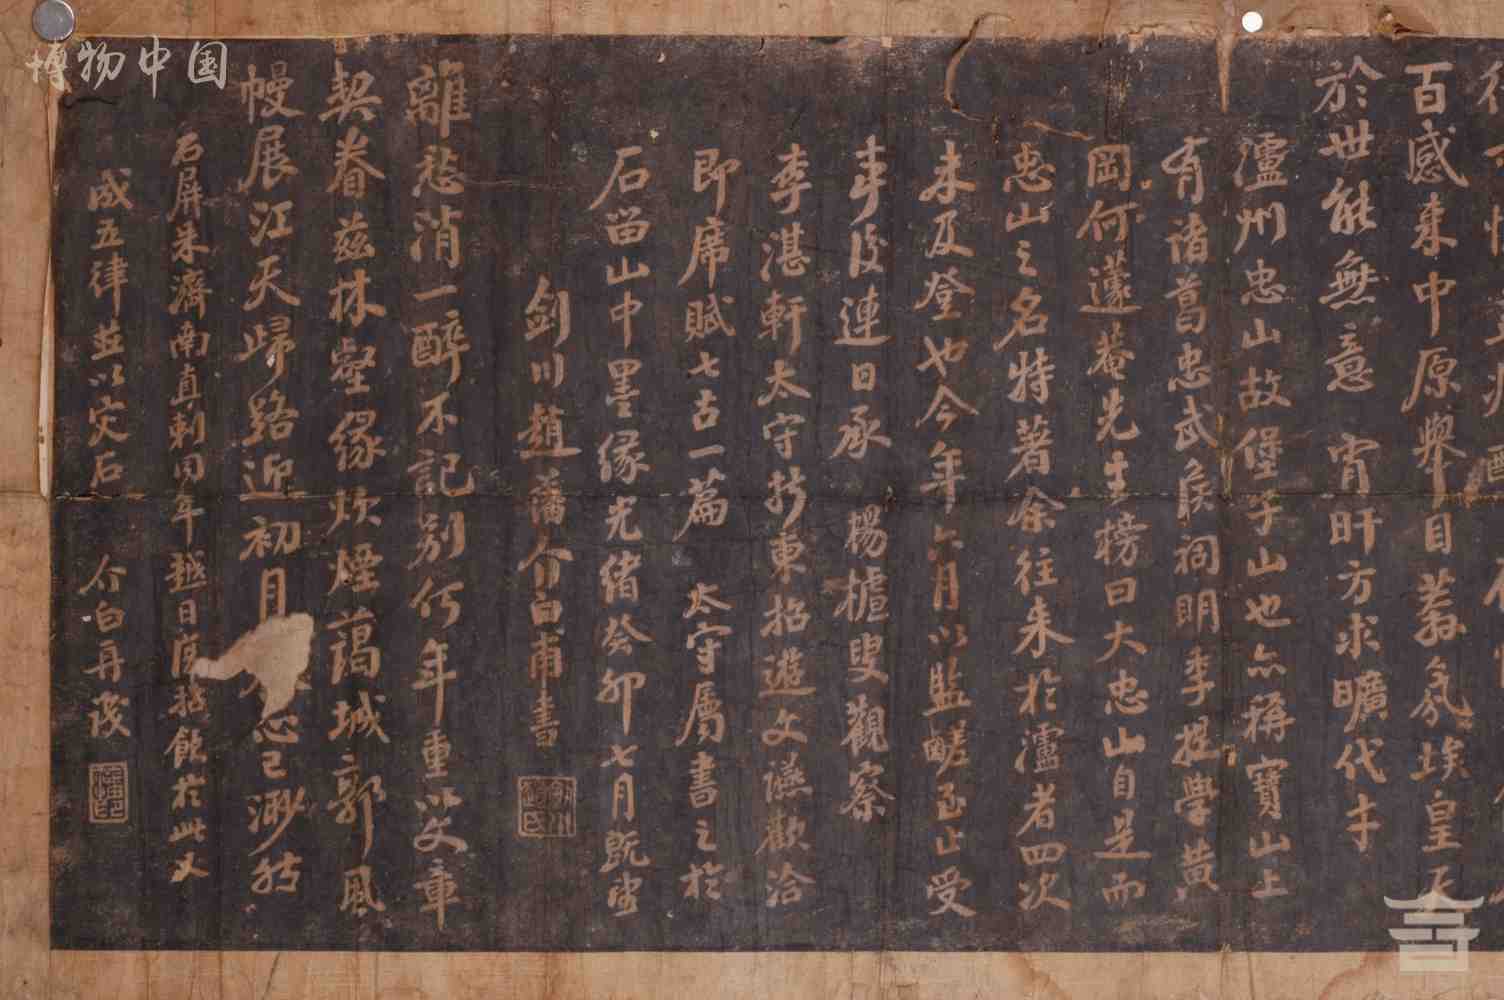 百感来中原舉目蓊氛埃皇天
於世能無意 宵旰方求曠代才
瀘州忠山故堡子山也亦稱寶山上
有諸葛忠武侯祠明李提學黃
岡何蓬菴先生榜曰大忠山自是而
忠山之名特著余往来於瀘者四次
未及登也今年六月以監鹾至止受
事後連日承 楊樝叟觀察
李湛軒太守折柬招遊文讌歡洽
即席賦七古一篇 太守屬書之於
石留山中墨緣光緒癸卯七月既望
劍川趙藩介白甫書
劍川趙氏
離愁消一醉不記別何年重以文章
契眷茲林壑緣炊煙藹城郭風
幔展江天歸路近初月 心已渺然
石屏朱濟南直刺同年越日復招飲於此又
成五律並以灾石 介白再識
博物中国